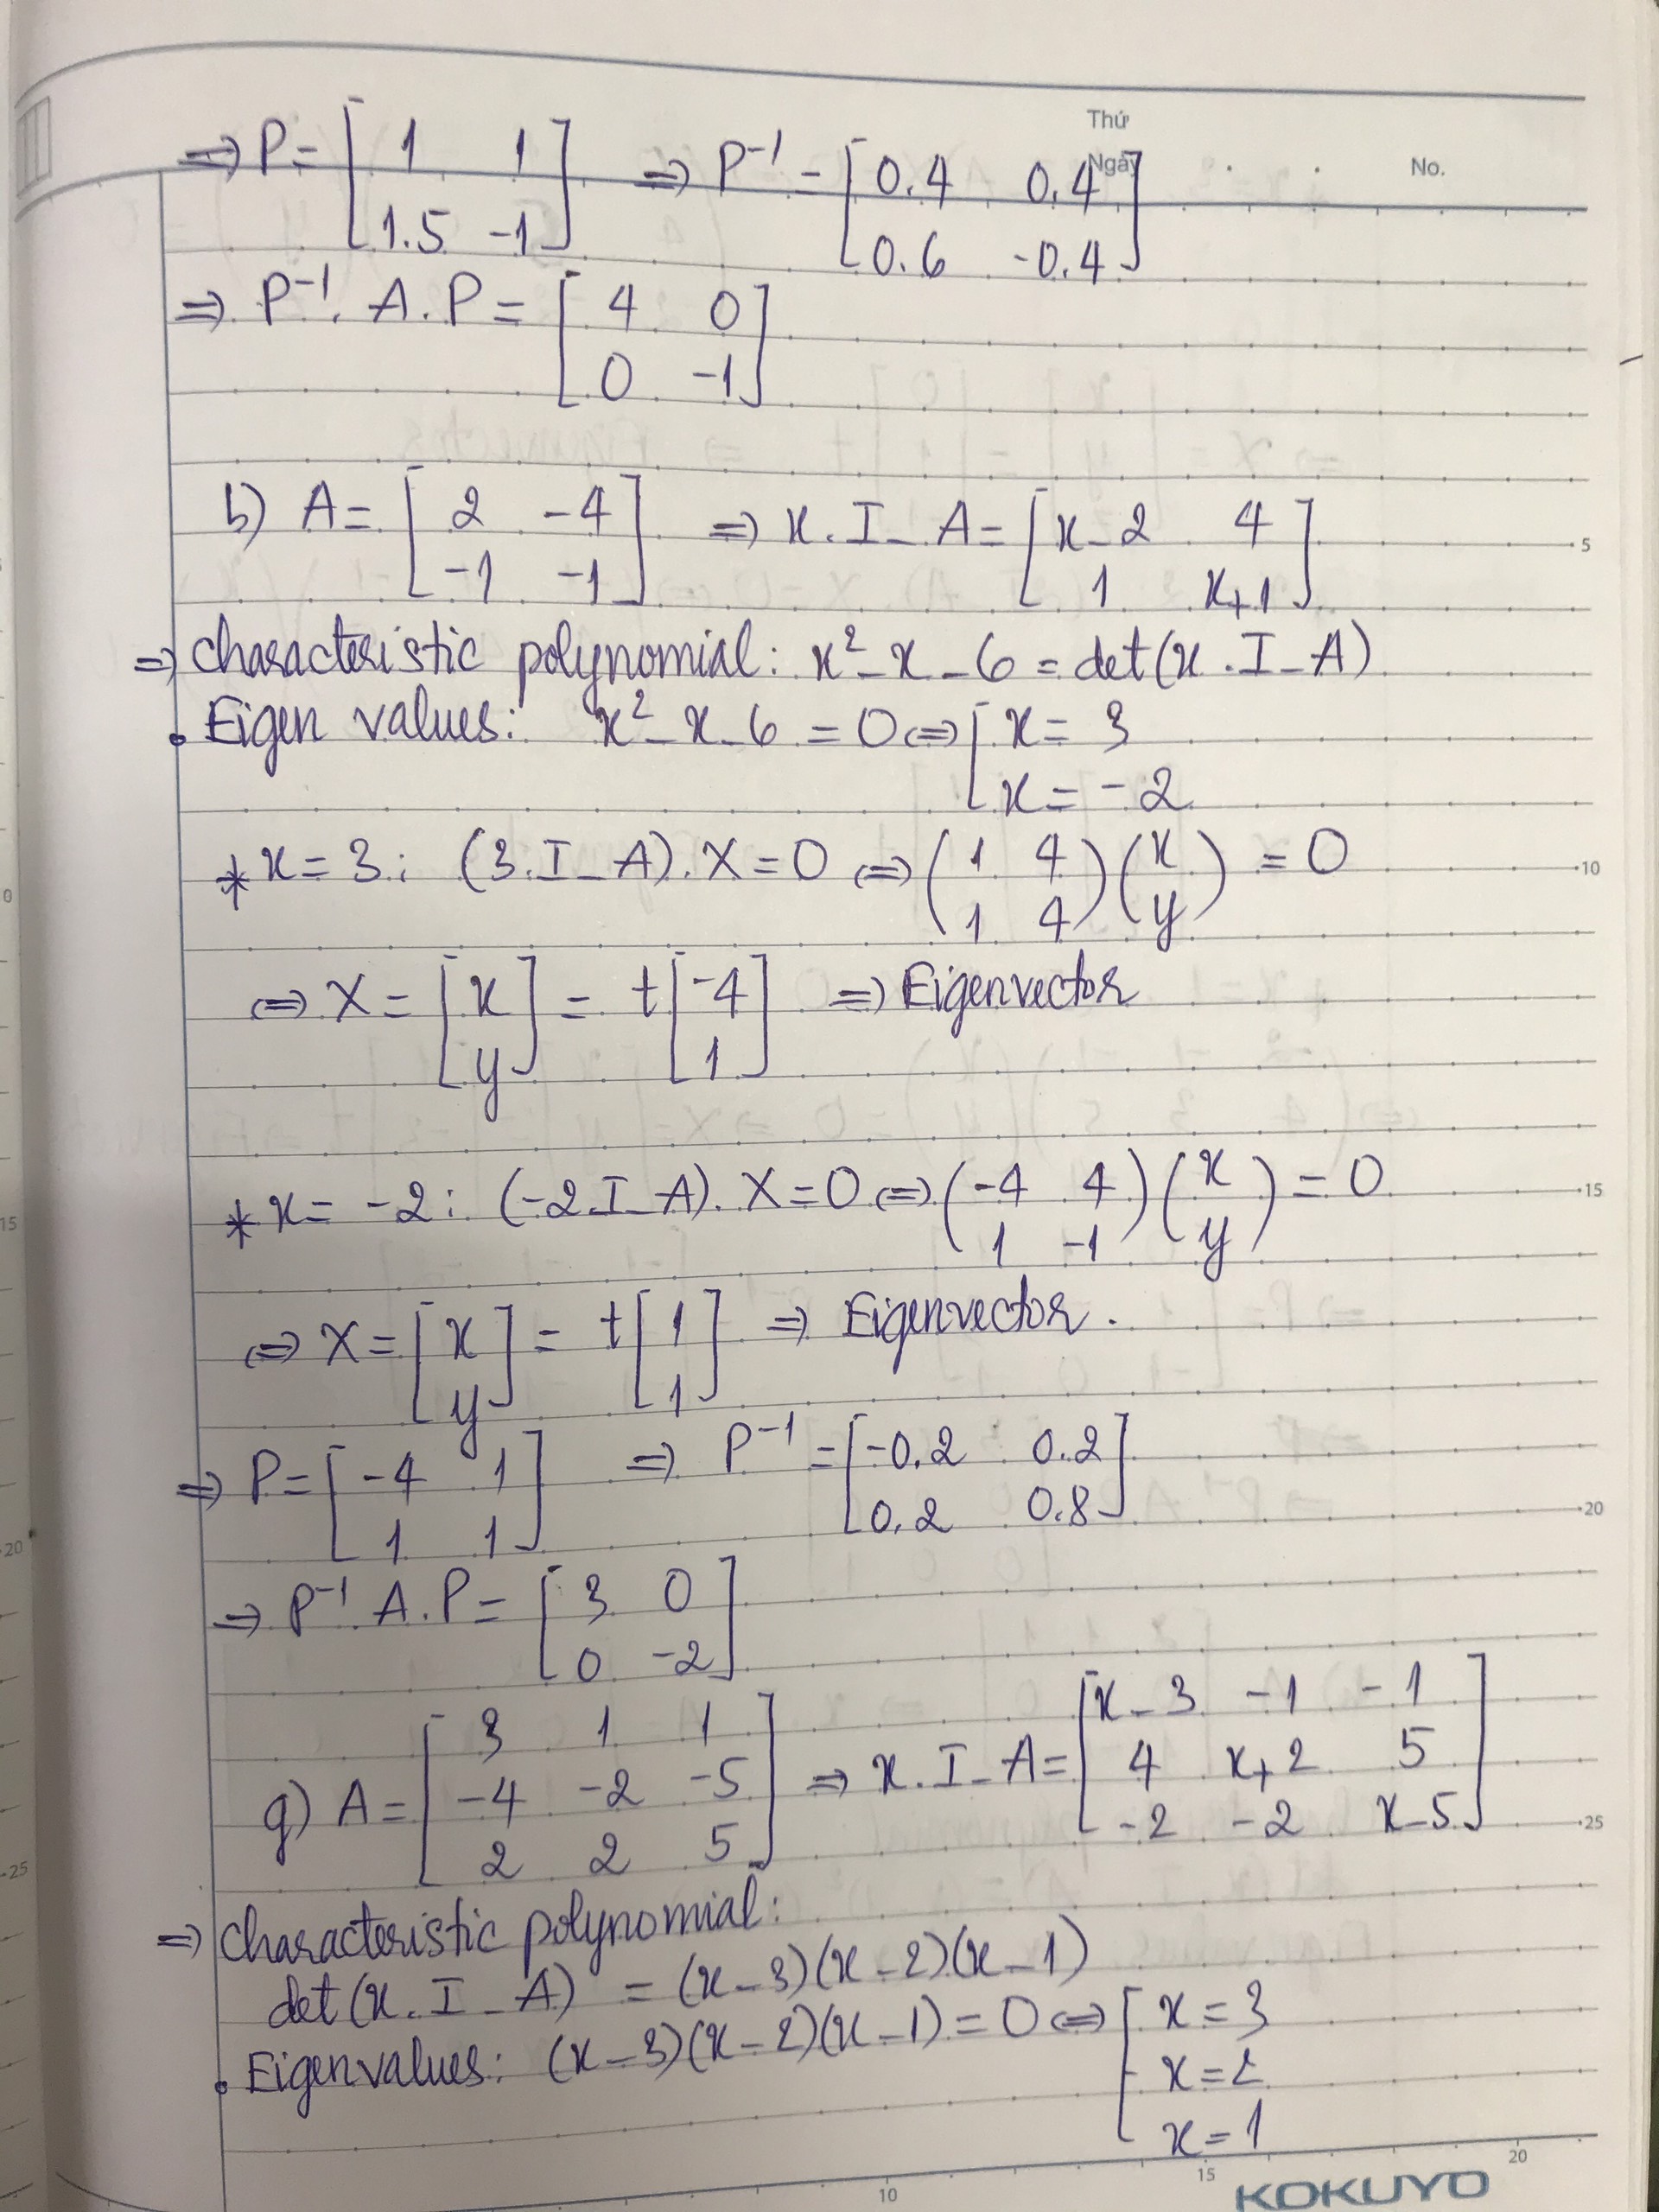 Thứ
Ngày
No.
⇒ P = [1 1; 1.5 -1] ⇒ P⁻¹ = [0.4 0.4; 0.6 -0.4]
⇒ P⁻¹. A. P = [4 0; 0 -1]
b) A = [2 -4; -1 -1] ⇒ x. I - A = [x-2 4; 1 x+1]
⇒ Characteristic polynomial: x² - x - 6 = det(x. I - A)
• Eigen values: x² - x - 6 = 0 ⇔ [x = 3; x = -2
* x = 3: (3. I - A). X = 0 ⇔ (1 4; 1 4)(x; y) = 0
⇔ X = [x; y] = t[-4; 1] ⇒ Eigenvector
* x = -2: (-2. I - A). X = 0 ⇔ (-4 4; 1 -1)(x; y) = 0
⇔ X = [x; y] = t[1; 1] ⇒ Eigenvector.
⇒ P = [-4 1; 1 1] ⇒ P⁻¹ = [-0.2 0.2; 0.2 0.8]
⇒ P⁻¹. A. P = [3 0; 0 -2]
g) A = [3 1 1; -4 -2 -5; 2 2 5] ⇒ x. I - A = [x-3 -1 -1; 4 x+2 5; -2 -2 x-5]
⇒ Characteristic polynomial:
det(x. I - A) = (x-3)(x-2)(x-1)
• Eigenvalues: (x-3)(x-2)(x-1) = 0 ⇔ [x = 3; x = 2; x = 1
5
10
15
20
25
10 15 20
KOKUYO